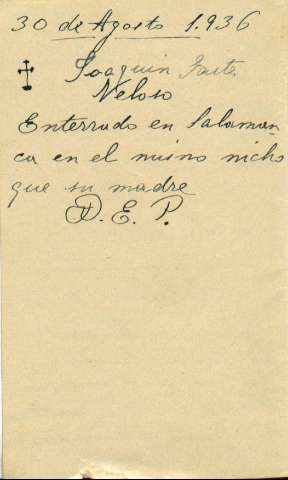 30 de Agosto 1.936
Joaquin
Veloso
Enterrado en Salaman-
ca en el mismo nicho
que su madre
D. E. P.